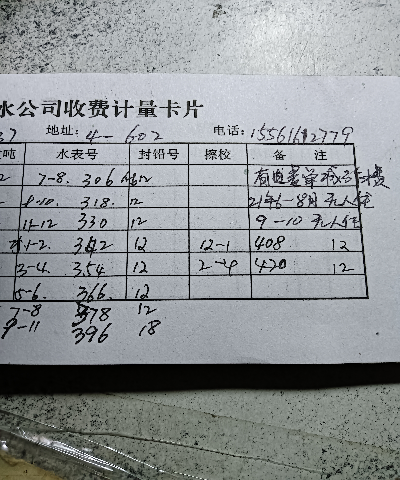 水公司收费计量卡片
37 地址: 4-602 电话: 15561612779
吨 水表号 封铅号 擦校 备 注
2 7-8. 306 12
9-10. 318. 12 21年6-8月无人住
11-12 330 12 9-10 无人住
1-2. 342 12 12-1 408 12
3-4. 354 12 2-4 420 12
5-6. 366. 12
7-8 378 12
9-11 396 18